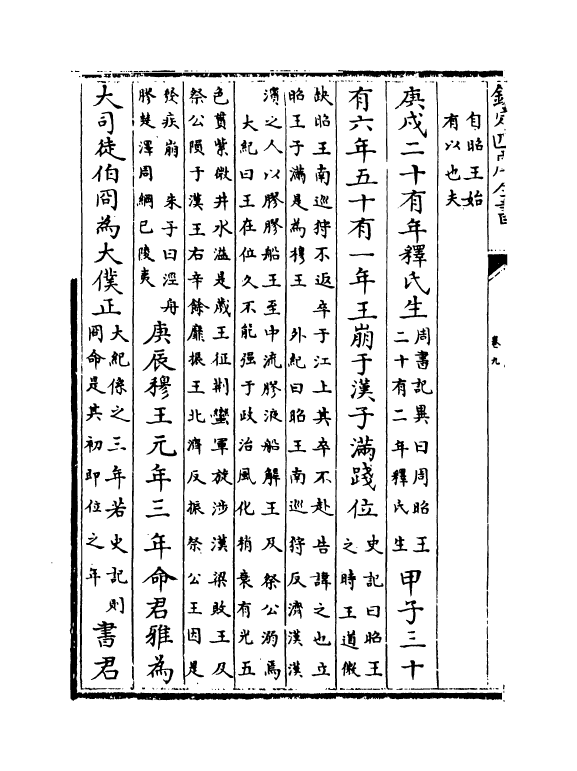 欽定四庫全書
卷九
自昭王始
有以也夫
庚戌二十有年釋氏生
周書記異曰周昭王
二十有二年釋氏生
甲子三十
有六年五十有一年王崩于漢子滿踐位
史記曰昭王
之時王道微
缺昭王南巡狩不返卒于江上其卒不赴告諱之也立
昭王子滿是為穆王 外紀曰昭王南巡狩反濟漢漢
濱之人以膠膠船王至中流膠液船解王及祭公溺焉
大紀曰王在位久不能强于政治風化稍衰有光五
色貫紫微井水溢是歲王征荆蠻軍旋涉漢梁敗王及
祭公隕于漢王右辛餘靡振王北濟反振祭公王因是
發疾崩 朱子曰涇舟
膠楚澤周綱已陵夷
庚辰穆王元年三年命君雅為
大司徒伯冏為大僕正
大紀係之三年若史記則
冏命是其初即位之年
書君